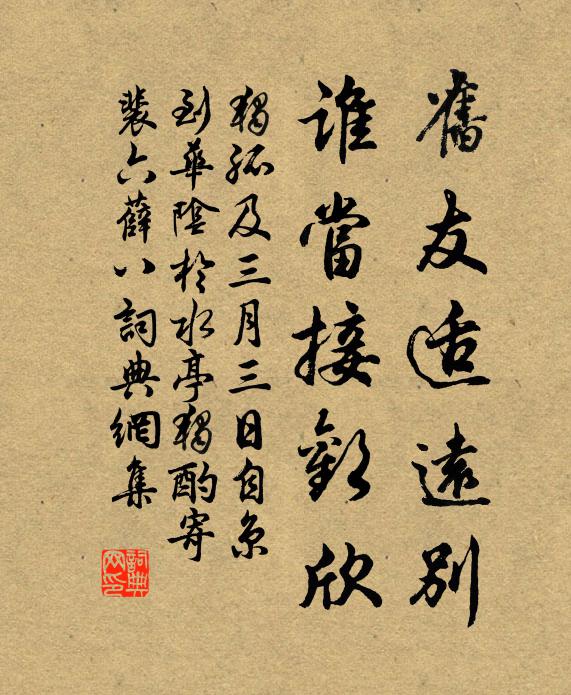 舊友适遠別
誰當接歡欣
獨孤及三月三日自京
到華陰於水亭獨酌寄
裴六薛八詞典網集
詞典网印